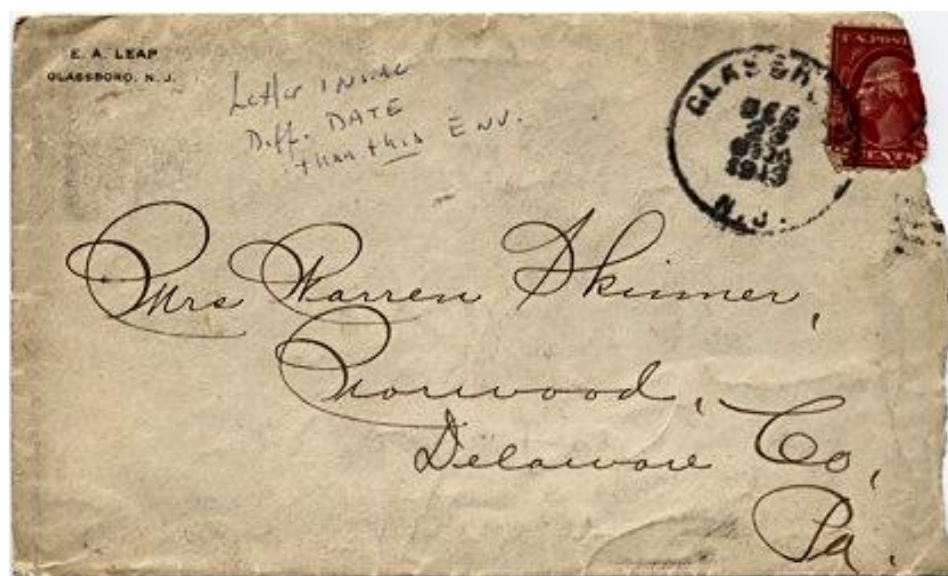 E. A. LEAP
GLASSBORO, N. J.
Letter INSIDE
Diff. DATE
than this ENV.
GLASSBORO
DEC
1913
N.J.
U.S. POST
CENTS
Mrs Warren Skinner,
Norwood,
Delaware Co,
Pa.